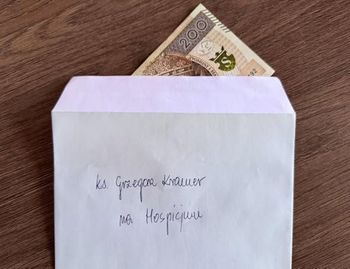 200
ks. Grzegorz Kramer
na Hospicjum